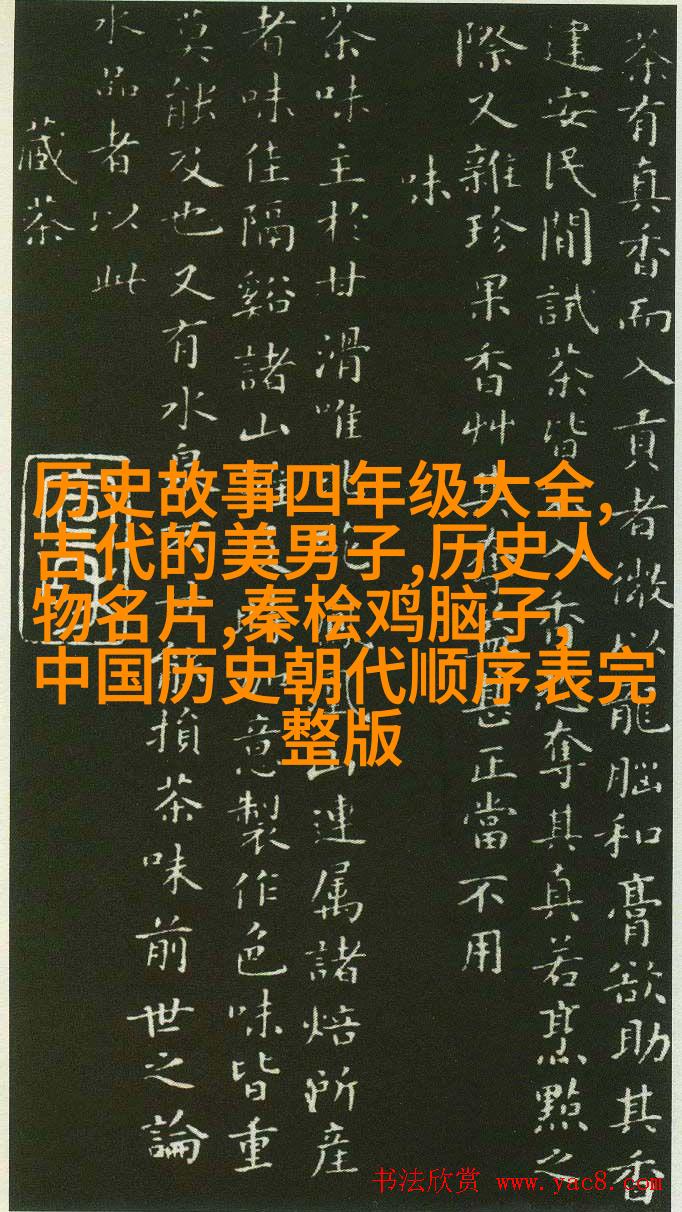 茶有真香而入貢者微以龍腦和膏欲助其香
建安民間試茶皆入香恐奪其真若烹點之
際又雜珍果香艸其奪益甚正當不用
味
茶味主於甘滑唯北鳳山連属諸焙所產
者味佳隔谿諸山雖及意製作色味皆重
莫能及也又有水泉不甘能損茶味前世之論
水品者以此
藏茶
历史故事四年级大全,
古代的美男子,历史人
物名片,秦桧鸡脑子,
中国历史朝代顺序表完
整版
书法欣赏 www.yac8.com